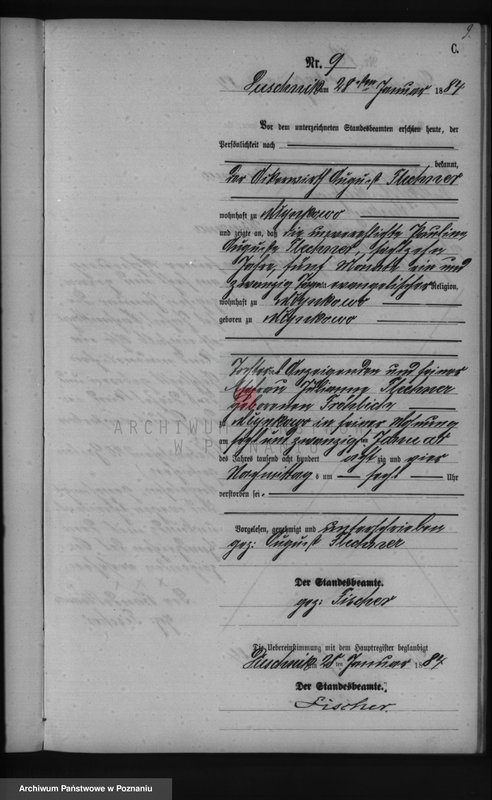 9.
C.
Nr. 9
Duschnik am 28 ten Januar 1884
Vor dem unterzeichneten Standesbeamten erschien heute, der
Persönlichkeit nach
bekannt,
der Ackerwirth August Flechner
wohnhaft zu Mlynkowo
und zeigte an, daß die unverehelichte Pauline
Auguste Flechner, sechszehn
Jahre, fünf Monate ein und
zwanzig Tage evangelischer Religion,
wohnhaft zu Mlynkowo
geboren zu Mlynkowo
Tochter des Anzeigenden und seiner
Ehefrau Flechner
geborenen Fröhlich
Mlynkowo in seiner Wohnung
am sechs und zwanzigsten Januar
des Jahres tausend acht hundert acht zig und vier
Nachmittag s um sechs Uhr
verstorben sei.
Vorgelesen, genehmigt und unterschrieben
gez: August Flechner
Der Standesbeamte.
gez: Fischer
Die Uebereinstimmung mit dem Hauptregister beglaubigt
Duschnik am 28 ten Januar 1884
Der Standesbeamte.
Fischer.
ARCHIWUM
W POZNANIU
Archiwum Państwowe w Poznaniu